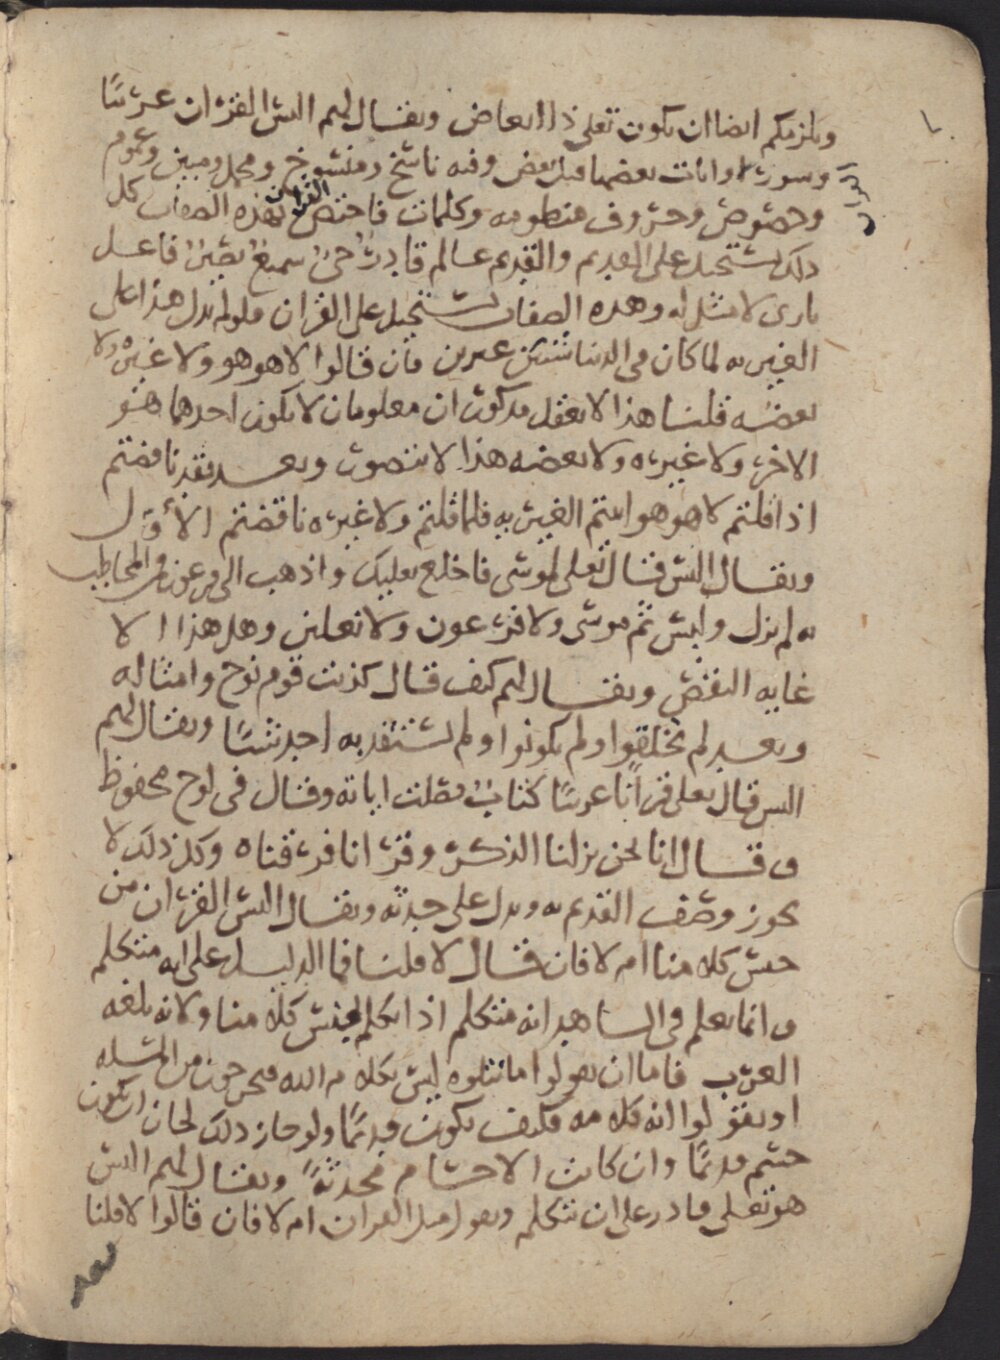 ويلزمكم ايضا ان يكون تعلى ذا ابعاض ويقال لهم اليس القران عربيًا
وسورة وايات بعضها قبل بعض وفيه ناسخ ومنسوخ ومجمل ومبين وعموم
وخصوص وحروف منظومه وكلمات فاختص القران بهذه الصفات كل
ذلك يستحيل على القديم والقديم عالم قادر حيٌ سميعٌ بصيرٌ فاعل
بارى لا مثل له وهذه الصفات تستحيل على القران فلو لم يدل هذا على
الغيريه لما كان فى الدنيا شيئين غيرين فان قالوا لا هو هو ولا غيره ولا
بعضه قلنا هذا لا يعقل مذكوران معلومان لا يكون احدهما هو
الاخر ولا غيره ولا بعضه هذا لا يتصور وبعد فقد ناقضتم
اذا قلتم لا هو هو اثبتم الغيريه فلما قلتم ولا غيره ناقضتم الأول
ويقال اليس قال تعلى لموسى فاخلع نعليك واذهب الى فرعون والمخاطب
به لم يزل وليس ثم موسى ولا فرعون ولا نعلين وهل هذا الا
غايه النقص ويقال لهم كيف قال كذبت قوم نوح وامثاله
وبعد لم يخلقوا ولم يكونوا ولم تستفد به احد شيئًا ويقال لهم
اليس قال تعلى قرآنًا عربيًا كتابٌ فصلت اياته وقال فى لوح محفوظ
وقال انا نحن نزلنا الذكر وقرانا فرقناه وكل ذلك لا
يجوز وصف القديم به ويدل على حدثه ويقال اليس القران من
جنس كلامنا ام لا فان قال لا قلنا فما الدليل على انه متكلم
وانما يعلم فى الشاهد انه متكلم اذا تكلم بجنس كلامنا ولانه بلغه
العرب فاما ان يقولوا ما نتلوه ليس بكلام الله فيخرجون من المسله
او يقولوا انه كلامه فكيف يكون قديمًا ولو جاز ذلك لجاز ان يكون
جسم قديمًا وان كانت الاجسام محدثةً ويقال لهم اليس
هو تعلى قادر على ان يتكلم ويقول مثل القران ام لا فان قالوا لا قلنا